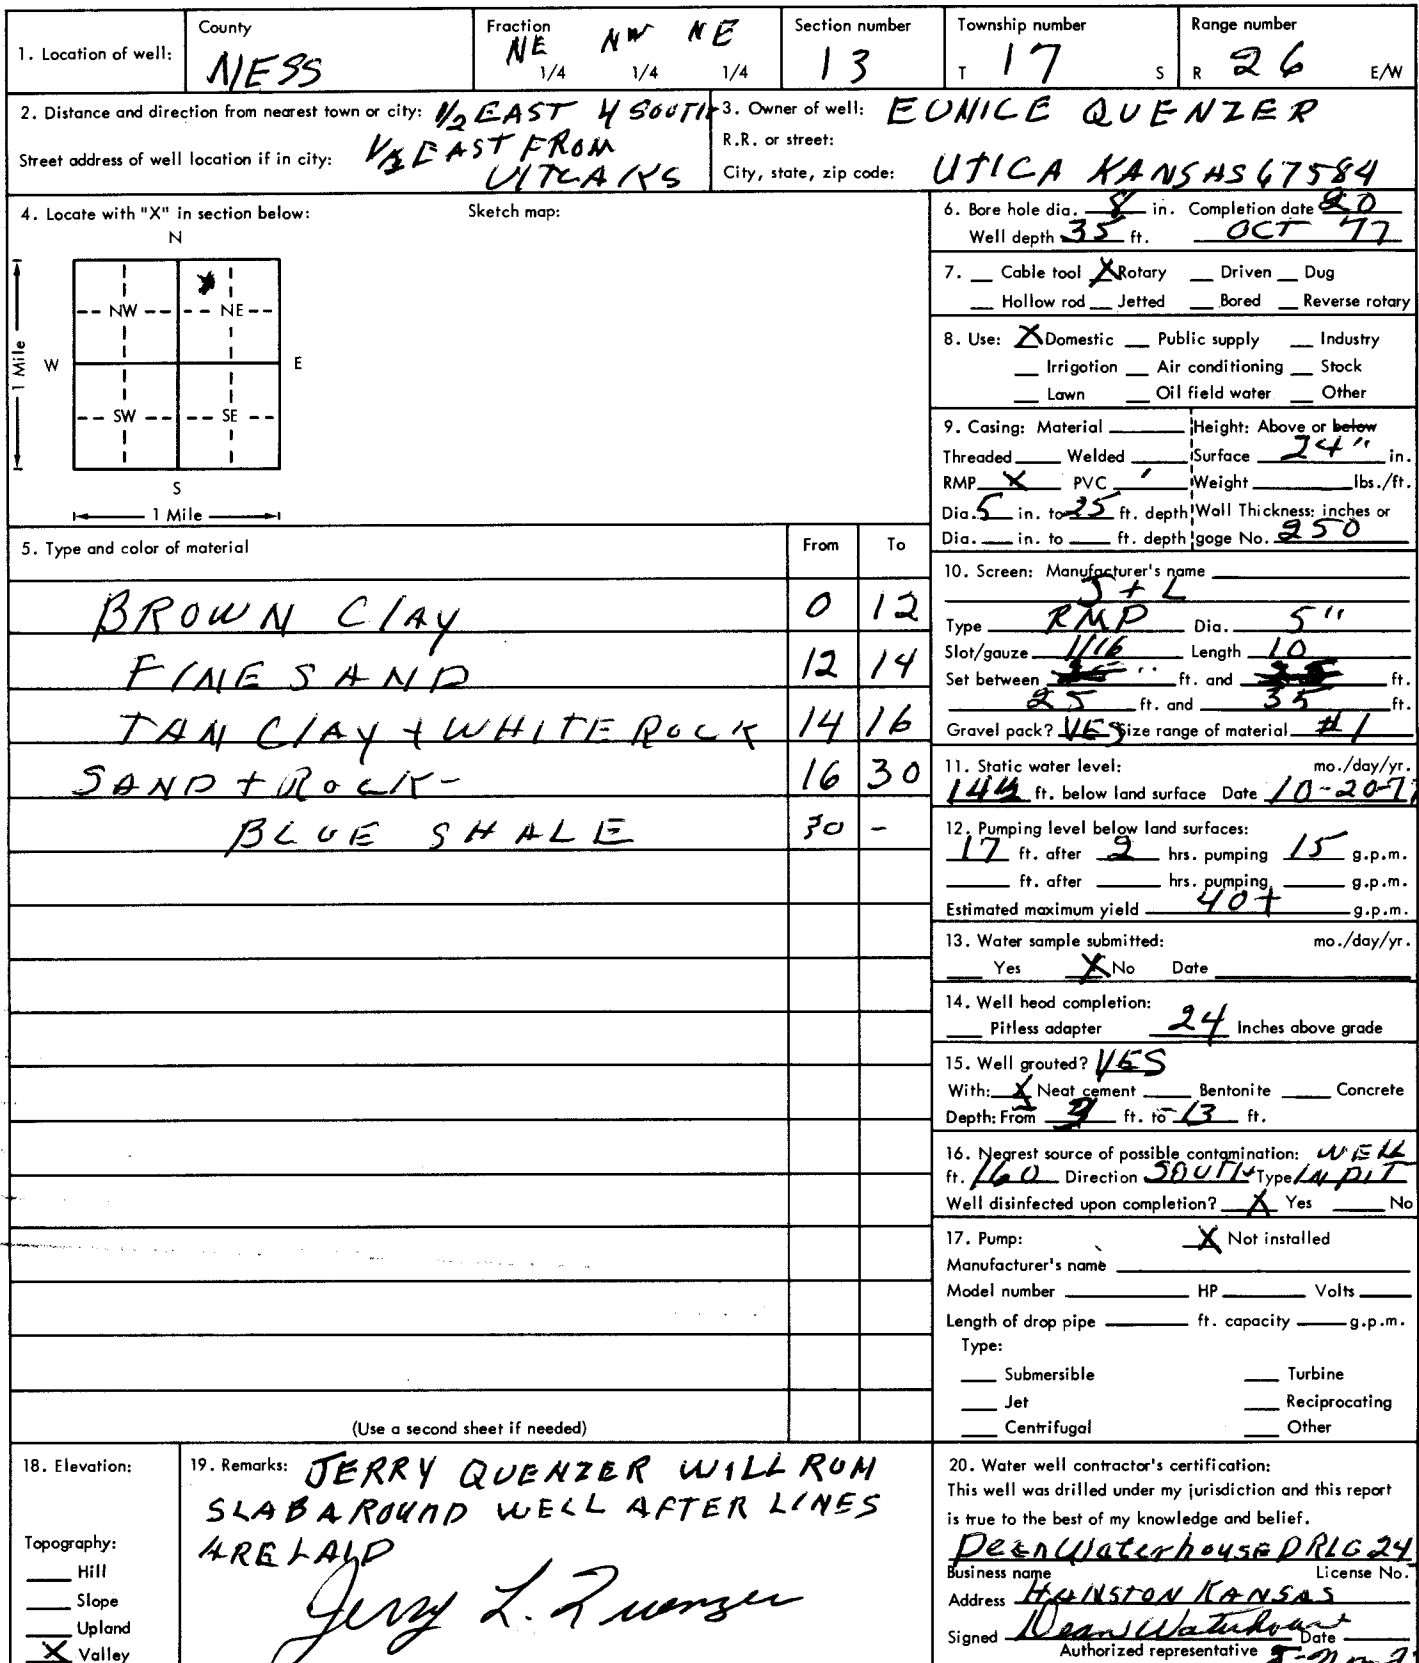 1. Location of well:
County
NESS
Fraction
NE NW NE
1/4 1/4 1/4
Section number
13
Township number
T 17 S
Range number
R 26 E/W
2. Distance and direction from nearest town or city: 1/2 EAST 4 SOUTH
1/2 EAST FROM
Street address of well location if in city:
UITCA KS
3. Owner of well: EUNICE QUENZER
R.R. or street:
City, state, zip code: UTICA KANSAS 67584
4. Locate with "X" in section below:
Sketch map:
N
NW NE
W E
1 Mile
SW SE
S
1 Mile
5. Type and color of material From To
BROWN CLAY 0 12
FINE SAND 12 14
TAN CLAY + WHITE ROCK 14 16
SAND + ROCK - 16 30
BLUE SHALE 30 -
(Use a second sheet if needed)
6. Bore hole dia. 8 in. Completion date 20
Well depth 35 ft. OCT 77
7. Cable tool X Rotary Driven Dug
Hollow rod Jetted Bored Reverse rotary
8. Use: X Domestic Public supply Industry
Irrigation Air conditioning Stock
Lawn Oil field water Other
9. Casing: Material Height: Above or below
Threaded Welded Surface 24" in.
RMP X PVC Weight lbs./ft.
Dia. 5 in. to 25 ft. depth Wall Thickness: inches or
Dia. in. to ft. depth gage No. 250
10. Screen: Manufacturer's name
J + L
Type RMP Dia. 5"
Slot/gauze 1/16 Length 10
Set between ft. and ft.
25 ft. and 35 ft.
Gravel pack? YES Size range of material #1
11. Static water level: mo./day/yr.
ft. below land surface Date 10-20-77
12. Pumping level below land surfaces:
17 ft. after 2 hrs. pumping 15 g.p.m.
ft. after hrs. pumping g.p.m.
Estimated maximum yield 40+ g.p.m.
13. Water sample submitted: mo./day/yr.
Yes X No Date
14. Well head completion:
Pitless adapter 24 Inches above grade
15. Well grouted? YES
With: X Neat cement Bentonite Concrete
Depth: From 3 ft. to 13 ft.
16. Nearest source of possible contamination: WELL
ft. 160 Direction SOUTH Type IN PIT
Well disinfected upon completion? X Yes No
17. Pump: X Not installed
Manufacturer's name
Model number HP Volts
Length of drop pipe ft. capacity g.p.m.
Type:
Submersible Turbine
Jet Reciprocating
Centrifugal Other
18. Elevation:
Topography:
Hill
Slope
Upland
X Valley
19. Remarks: JERRY QUENZER WILL RUN
SLAB AROUND WELL AFTER LINES
ARE LAID
Jerry L. Quenzer
20. Water well contractor's certification:
This well was drilled under my jurisdiction and this report
is true to the best of my knowledge and belief.
Dean Waterhouse DRLG 24
Business name License No.
Address HANSTON KANSAS
Signed Dean Waterhouse Date
Authorized representative